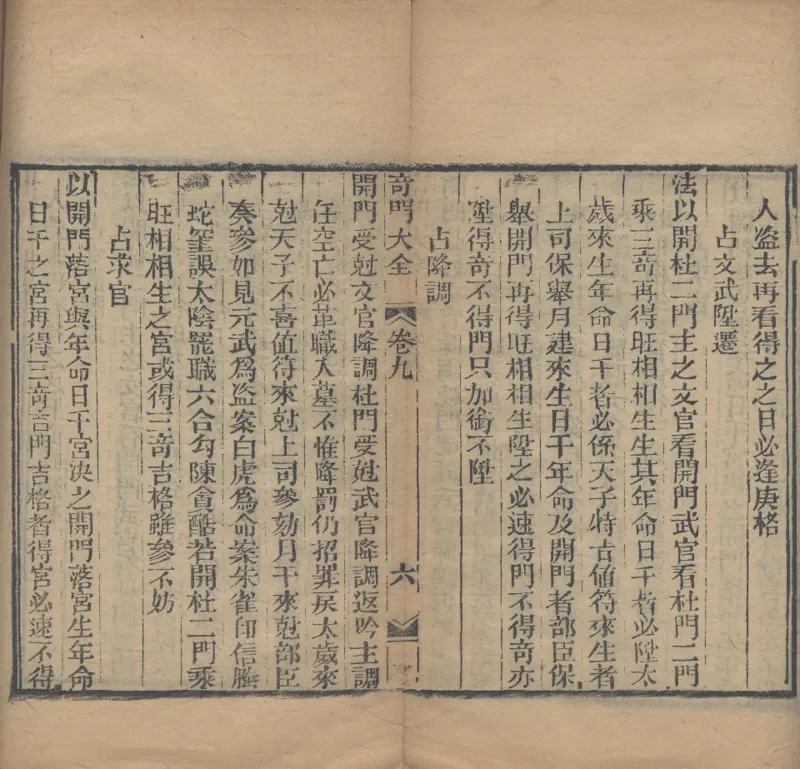 人盜去再看得之之日必逢庚格
占文武陞遷
法以開杜二門主之文官看開門武官看杜門二門
乘三奇再得旺相相生生其年命日干者必陞太
歲來生年命日干者必係天子特古值符來生者
上司保舉月建來生日干年命及開門者部臣保
舉開門再得旺相相生陞之必速得門不得奇亦
陞得奇不得門只加銜不陞
占降調
奇門大全 卷九 六
開門受尅文官降調杜門受尅武官降調返吟主調
任空亡必革職入墓不惟降罰仍招罪戾太歲來
尅天子不喜值符來尅上司參劾月干來尅部臣
奏參如見元武爲盗案白虎爲命案朱雀印信螣
蛇罣誤太陰罷職六合勾陳貪酷若開杜二門乘
旺相相生之宮或得三奇吉格雖參不妨
占求官
以開門落宮與年命日干宮决之開門落宮生年命
日干之宮再得三奇吉門吉格者得官必速不得